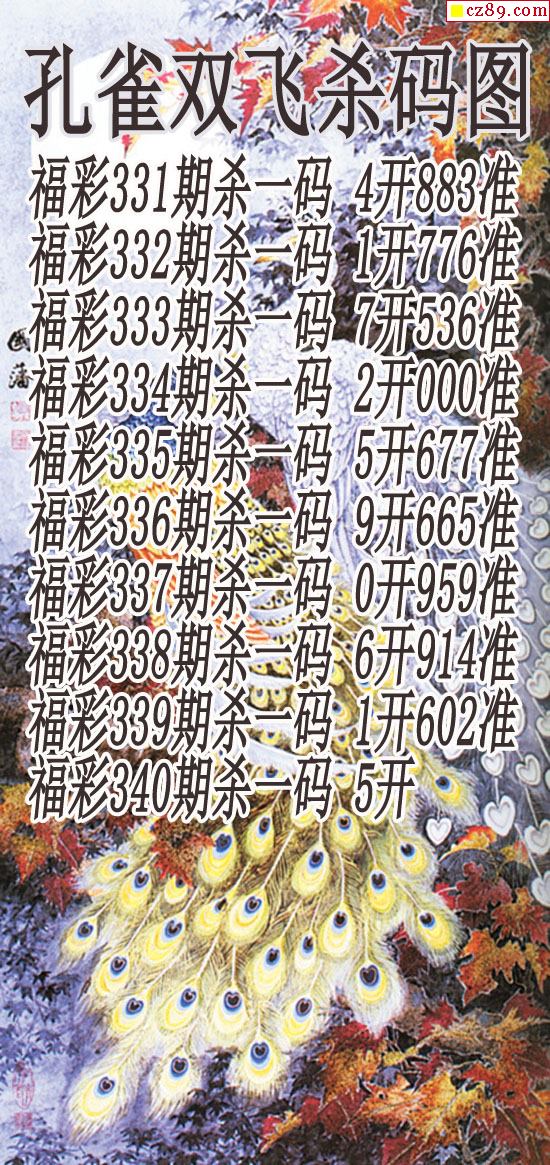 cz89.com
孔雀双飞杀码图
福彩331期杀一码 4开883准
福彩332期杀一码 1开776准
福彩333期杀一码 7开536准
福彩334期杀一码 2开000准
福彩335期杀一码 5开677准
福彩336期杀一码 9开665准
福彩337期杀一码 0开959准
福彩338期杀一码 6开914准
福彩339期杀一码 1开602准
福彩340期杀一码 5开